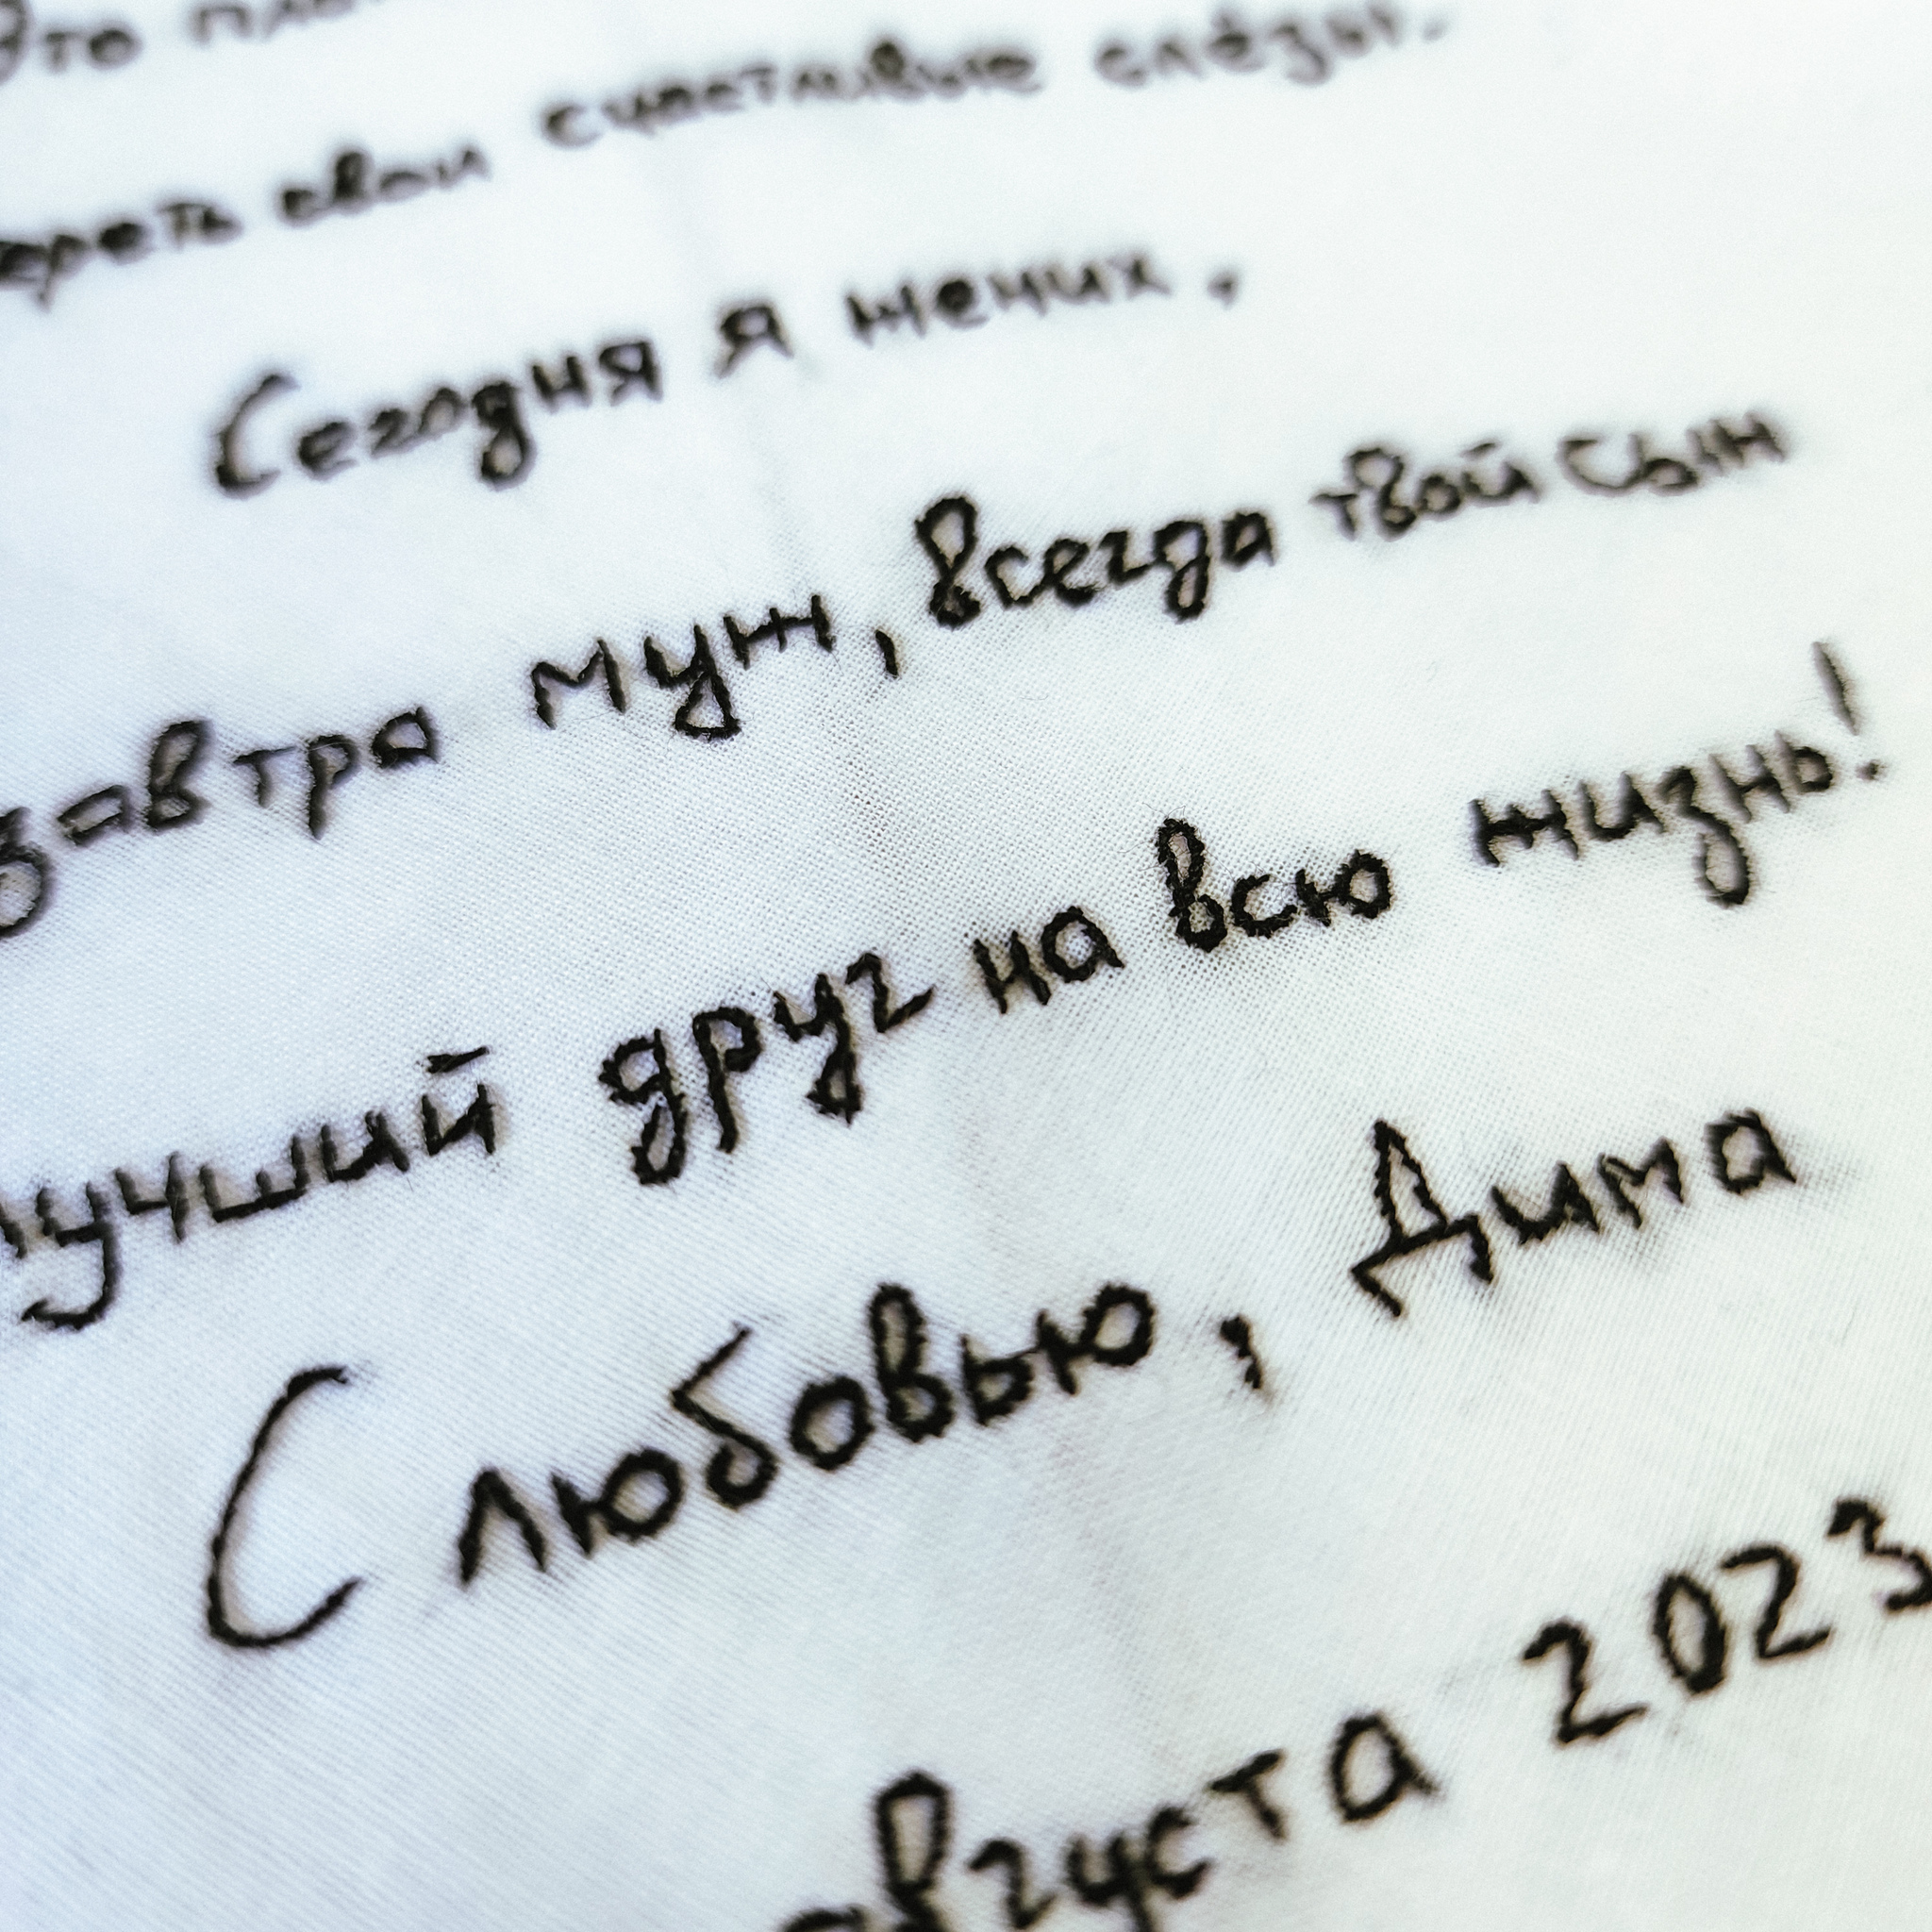 Это
свои счастливые слёзы.
Сегодня я жених,
завтра муж, всегда твой сын
лучший друг на всю жизнь!
С любовью, Дима
августа 2023